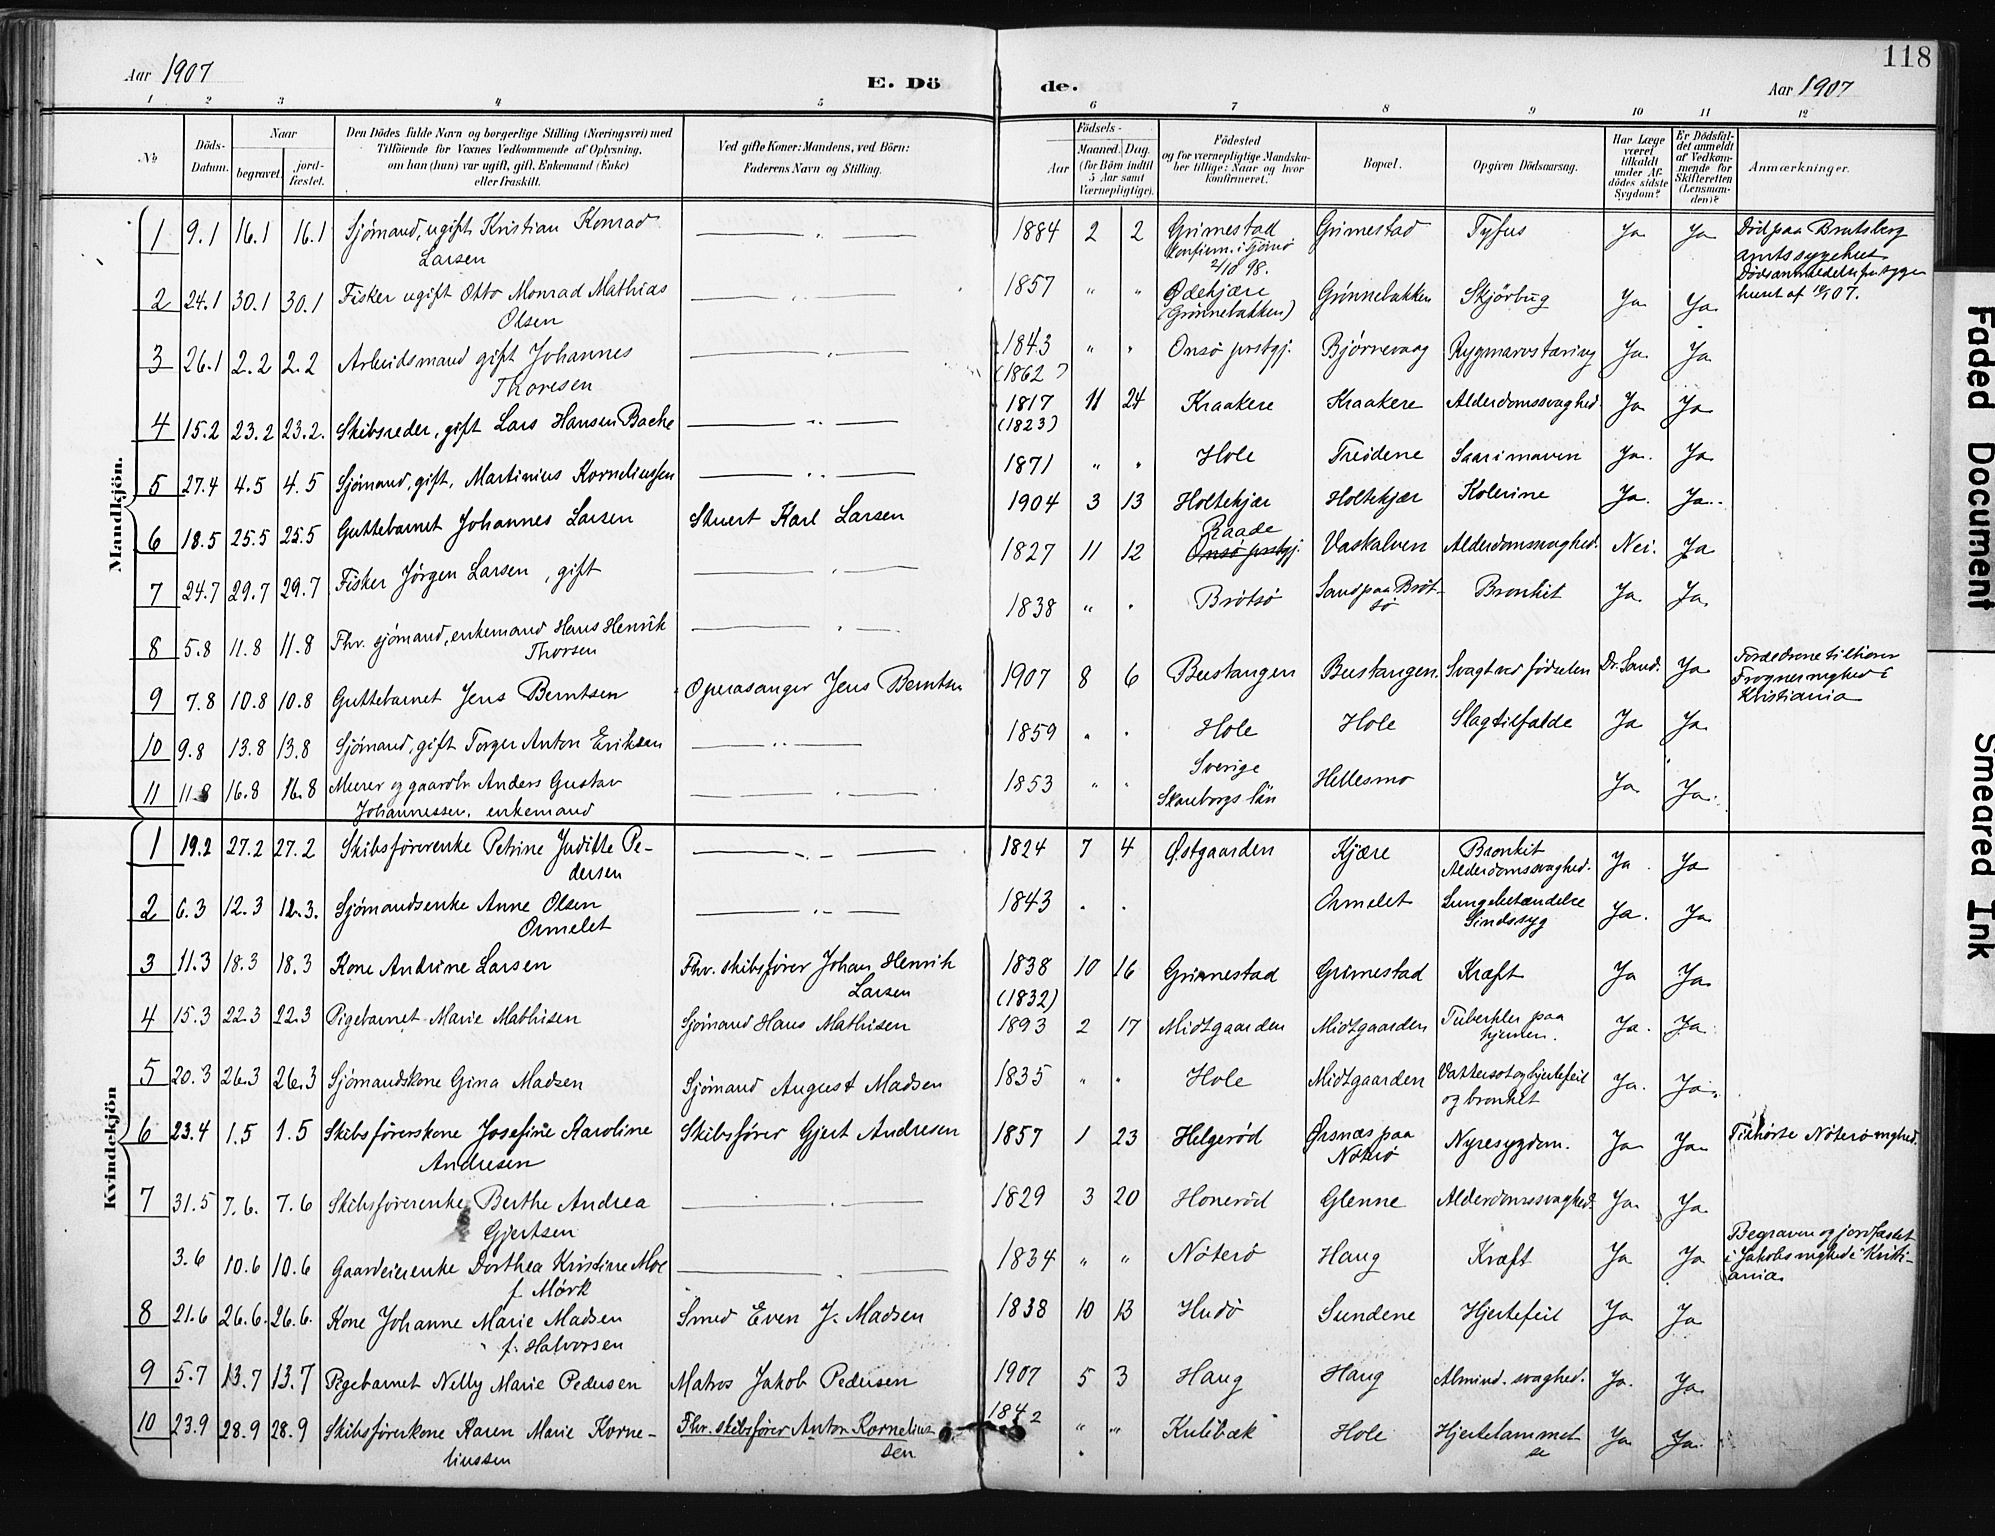 118
Aar 1907
E. Dö de.
Aar 1907
1 2 3 4 5 6 7 8 9 10 11 12
No
Döds-Datum.
Naar
begravet.
jord-fæstet.
Den Dödes fulde Navn og borgerlige Stilling (Næringsvei) med
Tilföiende for Voxnes Vedkommende af Oplysning,
om han (hun) var ugift, gift, Enkemand (Enke)
eller fraskilt.
Ved gifte Koner: Mandens, ved Börn:
Faderens Navn og Stilling.
Födsels-
Aar
Maaned. Dag.
(for Börn indtil
5 Aar samt
Værnepligtige).
Födested
og for værnepligtige Mandska-
ber tillige: Naar og hvor
konfirmeret.
Bopæl.
Opgiven Dödsaarsag.
Har Læge
været
tilkaldt
under Af-
dödes sidste
Sygdom?
Er Dödsfal-
det anmeldt
af Vedkom-
mende for
Skifteretten
(Lensman-
den)?
Anmærkninger.
Mandkjön.
1 9.1 16.1 16.1 Sjömand, ugift Kristian Konrad
Larsen
1884 2 2 Grimestad
Konfirm. i Tjömö
2/10 98.
Grimestad Tyfus Ja Ja Död paa Bratsberg
amtssygehus.
Dödsanmeldelse fra syge
huset af 07.
2 24.1 30.1 30.1 Fisker ugift Otto Monrad Mathias
Olsen
1857 " " Ødekjære
(Grönnebakken)
Grönnebakken Skjörbug Ja Ja
3 26.1 2.2 2.2 Arbeidsmand gift Johannes
Thoresen
1843
(1862?)
" " Onsö prstgj. Bjørnevaag Rygmarvstæring Ja Ja
4 15.2 23.2 23.2. Skibsreder, gift Lars Hansen Bache
1817
(1823)
11 24 Kraakere Kraakere Alderdomssvaghed. Ja Ja
5 27.4 4.5 4.5 Sjömand, gift, Martinius Korneliussen
1871 " " Hole Treidene Saar i maven Ja. Ja
6 18.5 25.5 25.5 Guttebarnet Johannes Larsen Stuert Karl Larsen
1904 3 13 Holtekjær Holtekjær Kolerine Ja. Ja.
7 24.7 29.7 29.7 Fisker Jörgen Larsen, gift
1827 11 12 Raade
Onsö prstgj.
Vaskalven Alderdomssvaghed. Nei. Ja
8 5.8 11.8 11.8 Fhv. sjömand, enkemand Hans Henrik
Thorsen
1838 " " Brötsö Sand paa Bröt-
sö
Bronkit Ja Ja
9 7.8 10.8 10.8 Guttebarnet Jens Berntsen Operasanger Jens Berntsen
1907 8 6 Bustangen Bustangen. Svagt ved födselen Dr. Sand. Ja Forældrene tilhörer
Frogner mghed i
Kristiania
10 9.8 13.8 13.8 Sjömand, gift Torger Anton Eriksen
1859 " " Hole Hole Slagtilfælde Ja Ja
11 11.8 16.8 16.8 Murer og gaardbr. Anders Gustav
Johannessen, enkemand
1853 " " Sverige
Skaraborgs län
Hellesmo Ja Ja.
Kvindekjön
1 19.2 27.2 27.2 Skibsförerenke Petrine Juditte Pe-
dersen
1824 7 4 Østgaarden Kjære Bronkit
Alderdomssvaghed.
Ja Ja
2 6.3 12.3 12.3. Sjömandsenke Anne Olsen
Ormelet
1843 " " Ormelet Lungebetændelse
Sindssyg
Ja. Ja
3 11.3 18.3 18.3 Kone Andrine Larsen Fhv. skibsförer Johan Henrik
Larsen
1838
(1832)
10 16 Grimestad Grimestad Kræft Ja Ja
4 15.3 22.3 22.3 Pigebarnet Marie Mathisen Sjömand Hans Mathisen
1893 2 17 Midtgaarden Midtgaarden Tuberkler paa
hjernen.
Ja. Ja.
5 20.3 26.3 26.3 Sjömandskone Gina Madsen Sjömand August Madsen
1835 " " Hole Midtgaarden Vattersot og hjertefeil
og bronkit
Ja. Ja.
6 23.4 1.5 1.5 Skibsförerskone Josefine Karoline
Andresen
Skibsförer Gjert Andresen
1857 1 23 Helgeröd Ørsnæs paa
Nöterö
Nyresygdom. Ja Ja Tilhörte Nöterö mghed.
7 31.5 7.6. 7.6 Skibsförerenke Berthe Andrea
Gjertsen
1829 3 20 Honeröd Glenne Alderdomssvaghed. Ja. Ja
3.6 10.6 10.6 Gaardeierenke Dorthea Kristine Moe
f. Mörk
1834 " " Nöterö Haug Kræft Ja Ja Begraven og jordfæstet
i Jakobs mghed i Kristi-
ania.
8 21.6 26.6. 26.6. Kone Johanne Marie Madsen
f. Halvorsen
Smed Even J. Madsen
1838 10 13 Hudö Sundene Hjertefeil Ja Ja
9 5.7 13.7 13.7 Pigebarnet Nelly Marie Pedersen Matros Jakob Pedersen
1907 5 3 Haug Haug Almind. svaghed. Ja. Ja
10 23.9 28.9 28.9 Skibsförerskone Karen Marie Korne-
liussen
Fhv. skibsförer Anton Kornelius-
sen
1842 " " Kulebæk Hole Hjertelammel-
se
Ja Ja
Faded Document
Smeared Ink